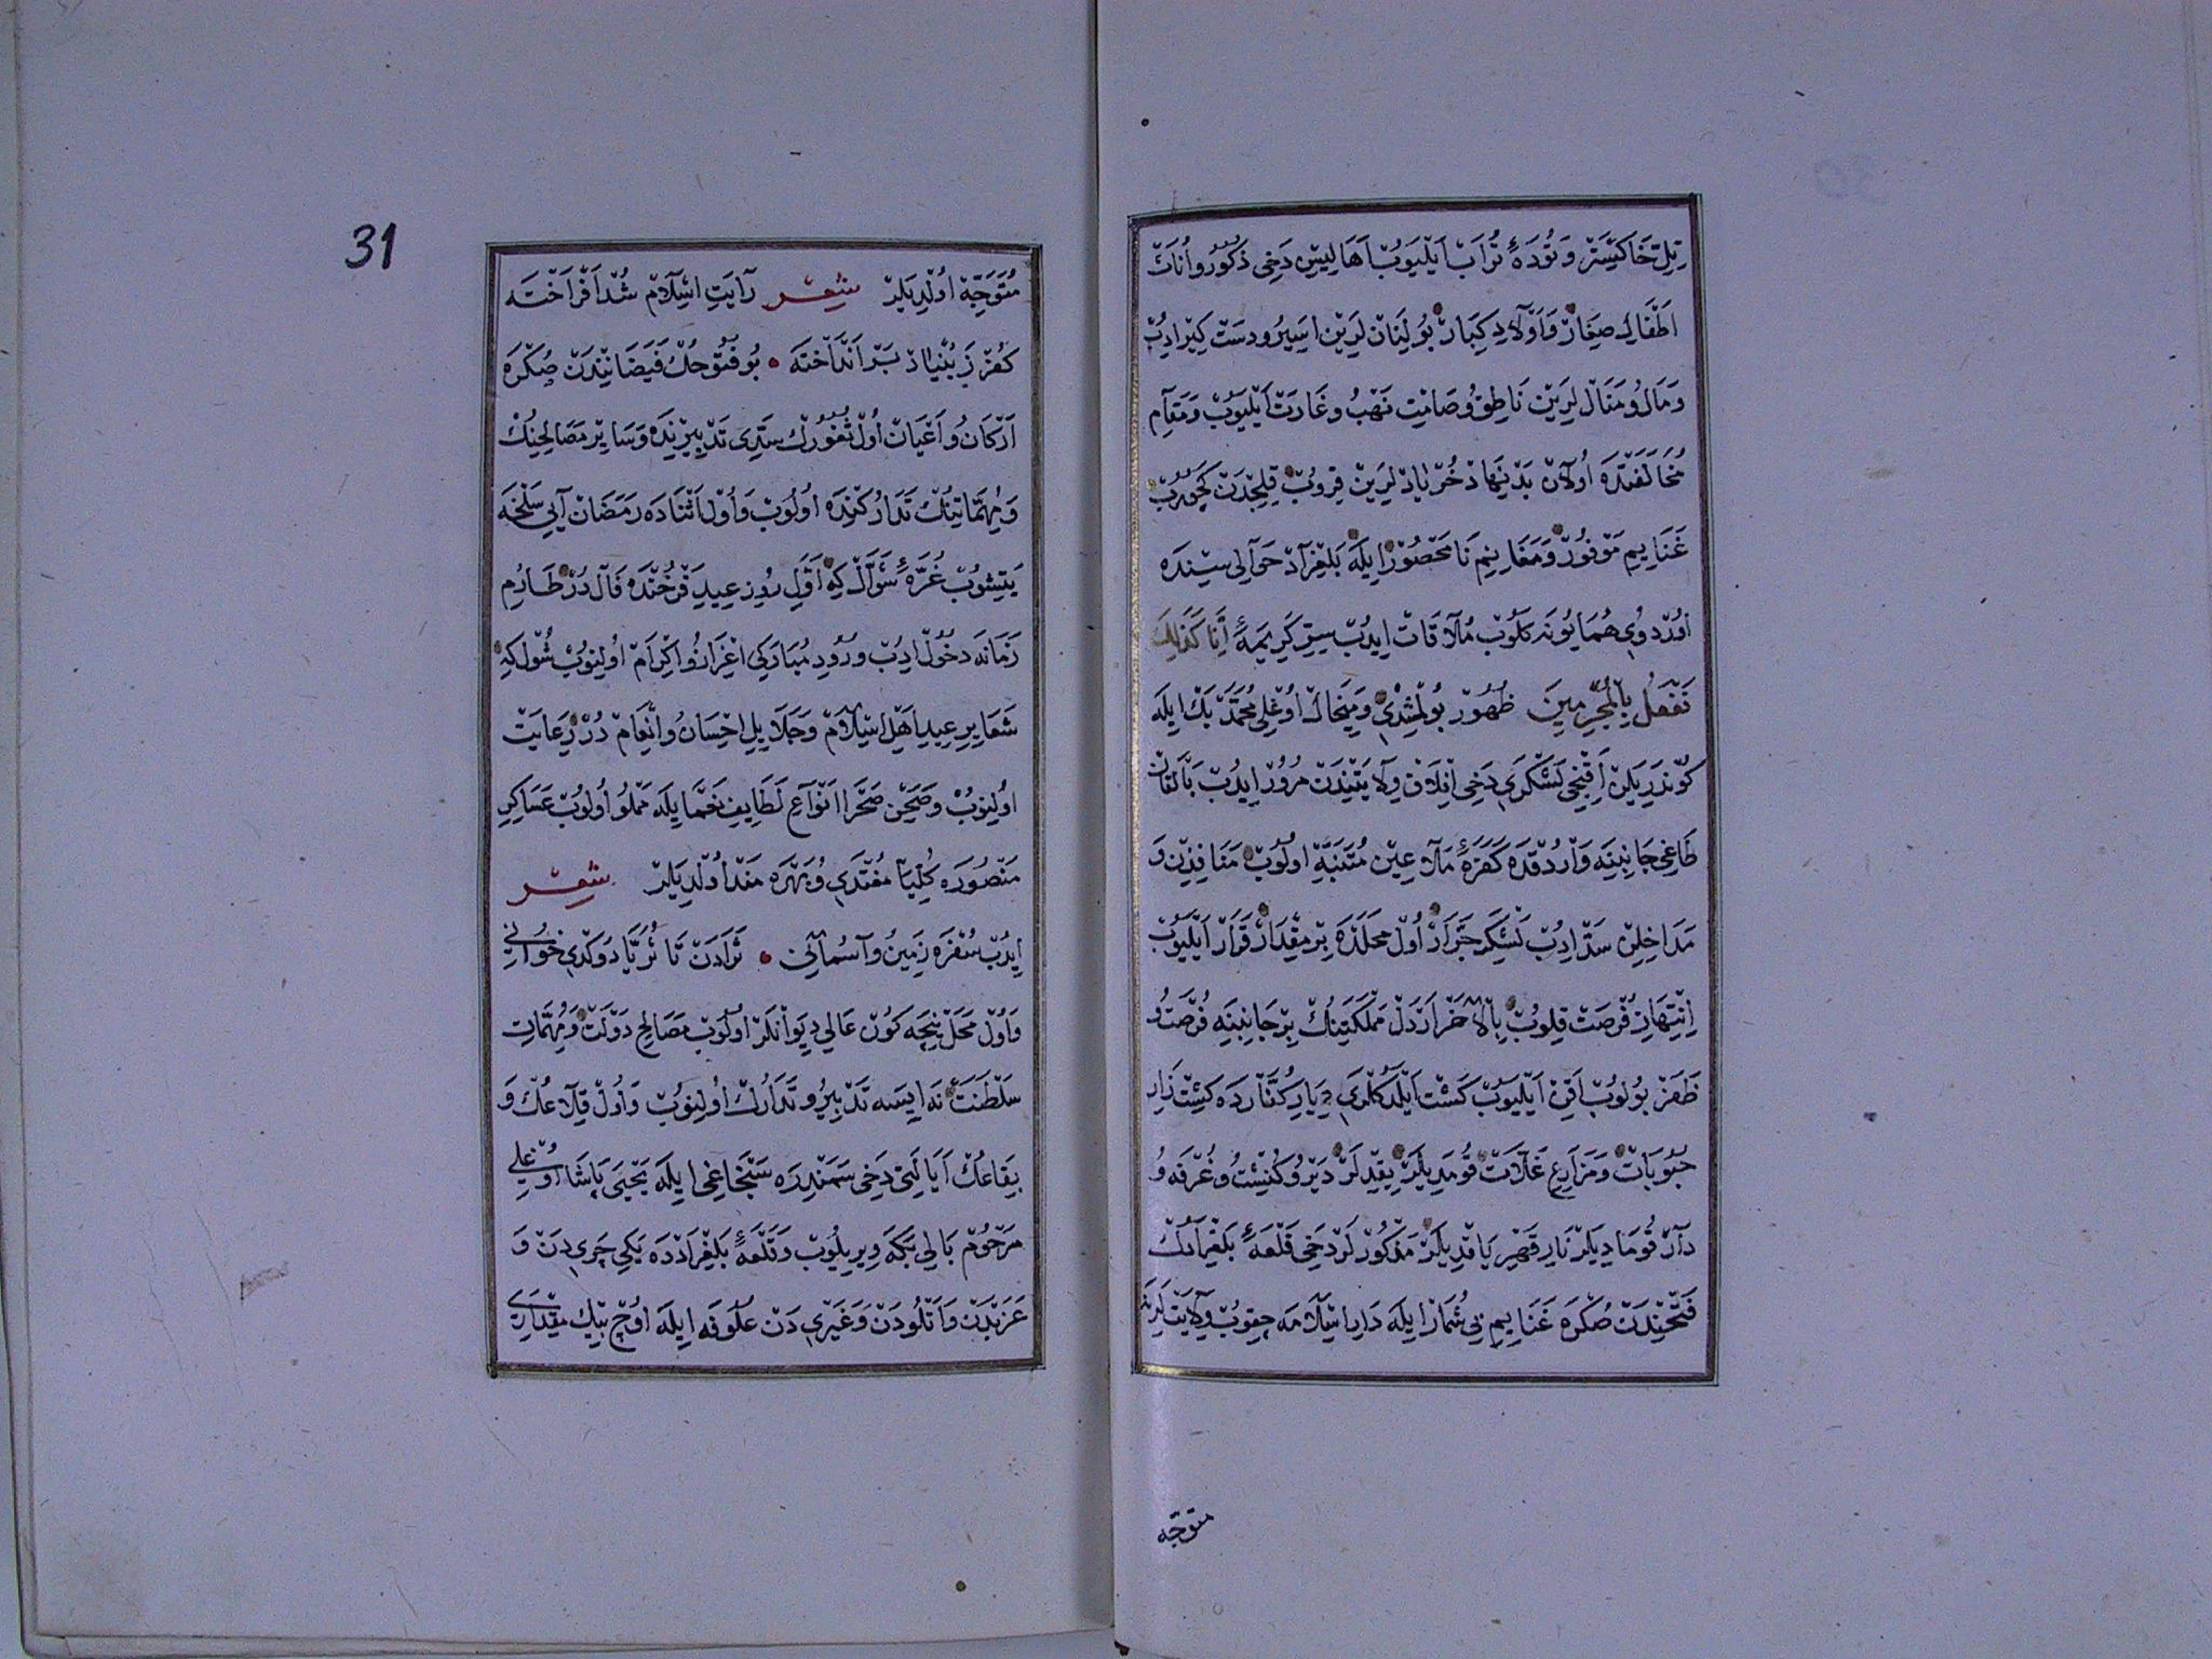 تِلِّ خَاكِسْتَرْ وَ تُودَهٔ تُرَابْ اَيْلَيُوبْ اَهَالِيسِنْ دَخِی ذُكُورُ و اُنَاثْ
اَطْفَالِ صِغَارْ وَ اَوْلَادِ كِبَارْ بُولِنَانْ لَرِينْ اَسِيرُ و دَسْتْ كِيرْ ادِبْ
وَ مَالُ و مَنَالْ لَرِينْ نَاطِقُ و صَامِتْ نَهْبُ و غَارَتْ اَيْلَيُوبْ وَ مَقَامِ
مُخَالَفَتْدَه اُولَانْ بَدْ نِهَادْ خُرْيَادْ لَرِينْ قِرُوبْ قِلِجْدَنْ كَچُورُبْ
غَنَايِمِ مَوْفُورْ وَ مَغَانِيمِ نَامَحْصُورْ اِيلَه بَلِغْرَادْ حَوَالِی سِنْدَه
اُورْدُوی هُمَايُونَه كَلُوبْ مُلَاقَاتْ اِيدُبْ سِرِّ كَرِيمَهٔ اِنَّا كَذَلِكَ
نَفْعَلُ بِالْمُجْرِمِينَ ظُهُورْ بُولْمُشْدِی وَ مِيخَالْ اُوغْلِی مُحَمَّدْ بَكْ ايلَه
كُونْدَرِيلَنْ آقِنْجِی لَشْكَرِی دَخِی افْلَاقْ وِلَايَتِنْدَنْ مُرُورْ اِيدُبْ بَالْقَانْ
طَاغِی جَانِبِنَه وَارْدُقْدَه كَفَرَهٔ مَلَاعِينْ مُتَنَبِّهْ اولُوبْ مَنَافِذِنْ وَ
مَدَاخِلِنْ سَدّ ادِبْ لَشْكَرِ جَرَّارْ اُولْ مَحَلْدَه بِرْ مِقْدَارْ قَرَارْ اَيْلَيُوبْ
اِنْتِهَازِ فُرْصَتْ قِلُوبْ بِالْاٰخَرْ اَرْدَلْ مَمْلَكَتِنُكْ بِرْ جَانِبِنَه فُرْصَتُ و
ظَفَرْ بُولُوبْ اَقِنْ اَيْلَيُوبْ كَشْتْ اَيْلَدُكْلَرِی دِيَارِ كُفَّارْدَه كِشْتْ زَارِ
حُبُوبَاتْ وَ مَزَارِعِ غَلَّاتْ قُومَدِيلَرْ يِقْدِيلَرْ دَيْرُ و كُنِشْتُ و غُرْفَه وُ
دَارْ قُومَادِيلَرْ نَارِ قَهْرِ يَاقْدِيلَرْ مَذْكُورْلَرْ دَخِی قَلْعَهٔ بَلِغْرَادُكْ
فَتْحِنْدَنْ صُكْرَه غَنَايِمِ بِی شُمَارْ ايلَه دَارِ اسْلَامَه چِقُوبْ وِلَايَتْلَرِنَه
متوجّه
31
مُتَوَجِّهْ اُولْدِيلَرْ شِعْر رَايَتِ اسْلَامْ شُدْ اَفْرَاخْتَه
كُفْرْ زِ بُنْيَادْ بَرْ اَنْدَاخْتَه • بُو فُتُوحُكْ فَيَضَانِنْدَنْ صُكْرَه
اَرْكَانُ و اَعْيَانْ اُولْ ثُغُورُكْ سَدِّی تَدْبِيرِنْدَه وَ سَايِرْ مَصَالِحِنُكْ
وَ مُهِمَّاتِنُكْ تَدَارُكِنْدَه اُولُوبْ وَ اُولْ اَثْنَادَه رَمَضَانْ آيِی سَلْخَه
يَتِشُوبْ غُرَّهٔ شَوَّالْ كِه اَوَّلِ رُوزِ عِيدِ فَرْخُنْدَه فَالْ دُرْ طَارُمِ
زَمَانَه دُخُولْ ادِبْ وُرُودِ مُبَارَكِی اعْزَازُ و اكْرَامْ اُولِنُوبْ شُولْ كِه
شَعَايِرِ عِيدِ اَهْلِ اسْلَامْ وَ جَلَايِلِ احْسَانُ و انْعَامْ دُرْ رِعَايَتْ
اوُلِنُوبْ وَ صَحْنِ صَحْرَا اَنْوَاعِ لَطَايِفِ نَعْمَا يلَه مَمْلُو اُولُوبْ عَسَاكِرِ
مَنْصُورَه كُلِّيًّا مُغْتَدِی وُ بَهْرَه مَنْد اُولْدِيلَرْ شِعْر
ايدُبْ سُفْرَه زَمِينُ و آسُمَانِی • ثَرَادَنْ تَا ثُرَيَّا دُوكْدِی خُوَانِی
وَ اُولْ مَحَلْ نِيچَه كُونْ عَالِی دِيوَانْلَرْ اُولُوبْ مَصَالِحِ دَوْلَتْ وَ مُهِمَّاتِ
سَلْطَنَتْ نَه ايسَه تَدْبِيرُ و تَدَارُكْ اُولِنُوبْ وَ اُولْ قِلَاعُكْ وَ
بِقَاعُكْ اَيَالَتِی دَخِی سَمَنْدِرَه سَنْجَاغِی ايلَه يَحْيَی پَاشَا اُوغْلِی
مَرْحُومْ بَالِی بَكَه وِيرِيلُوبْ وَ قَلْعَهٔ بَلِغْرَادْدَه يَكِی چَرِی دِنْ وَ
عَزَبْدَنْ وَ اَتْلُودَنْ وَ غَيْرِی دَنْ عُلُوفَه ايلَه اُوچْ بِيكْ مِقْدَارِی